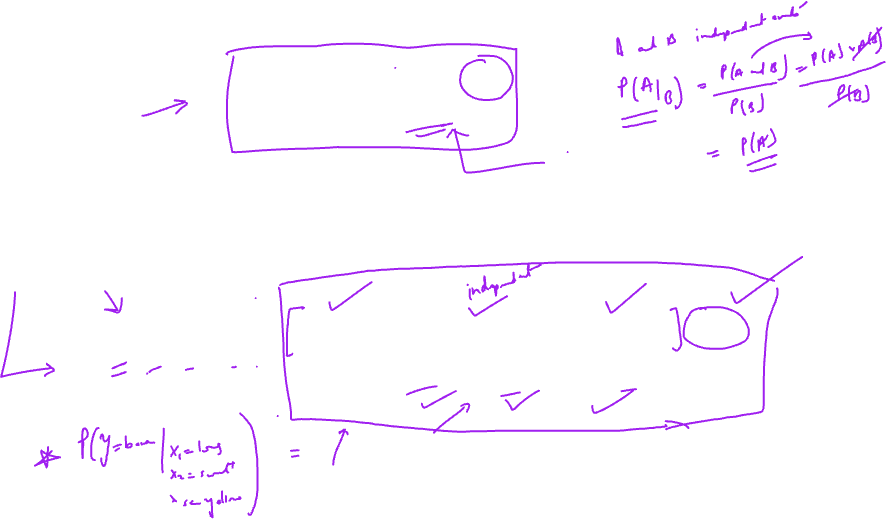 A and B independent events
P(A|B) = P(A and B) / P(B) = P(A) × P(B) / P(B)
= P(A)
independent
= - - -
* P(y=banana | x₁=long
x₂=sweet
x₃=yellow) =